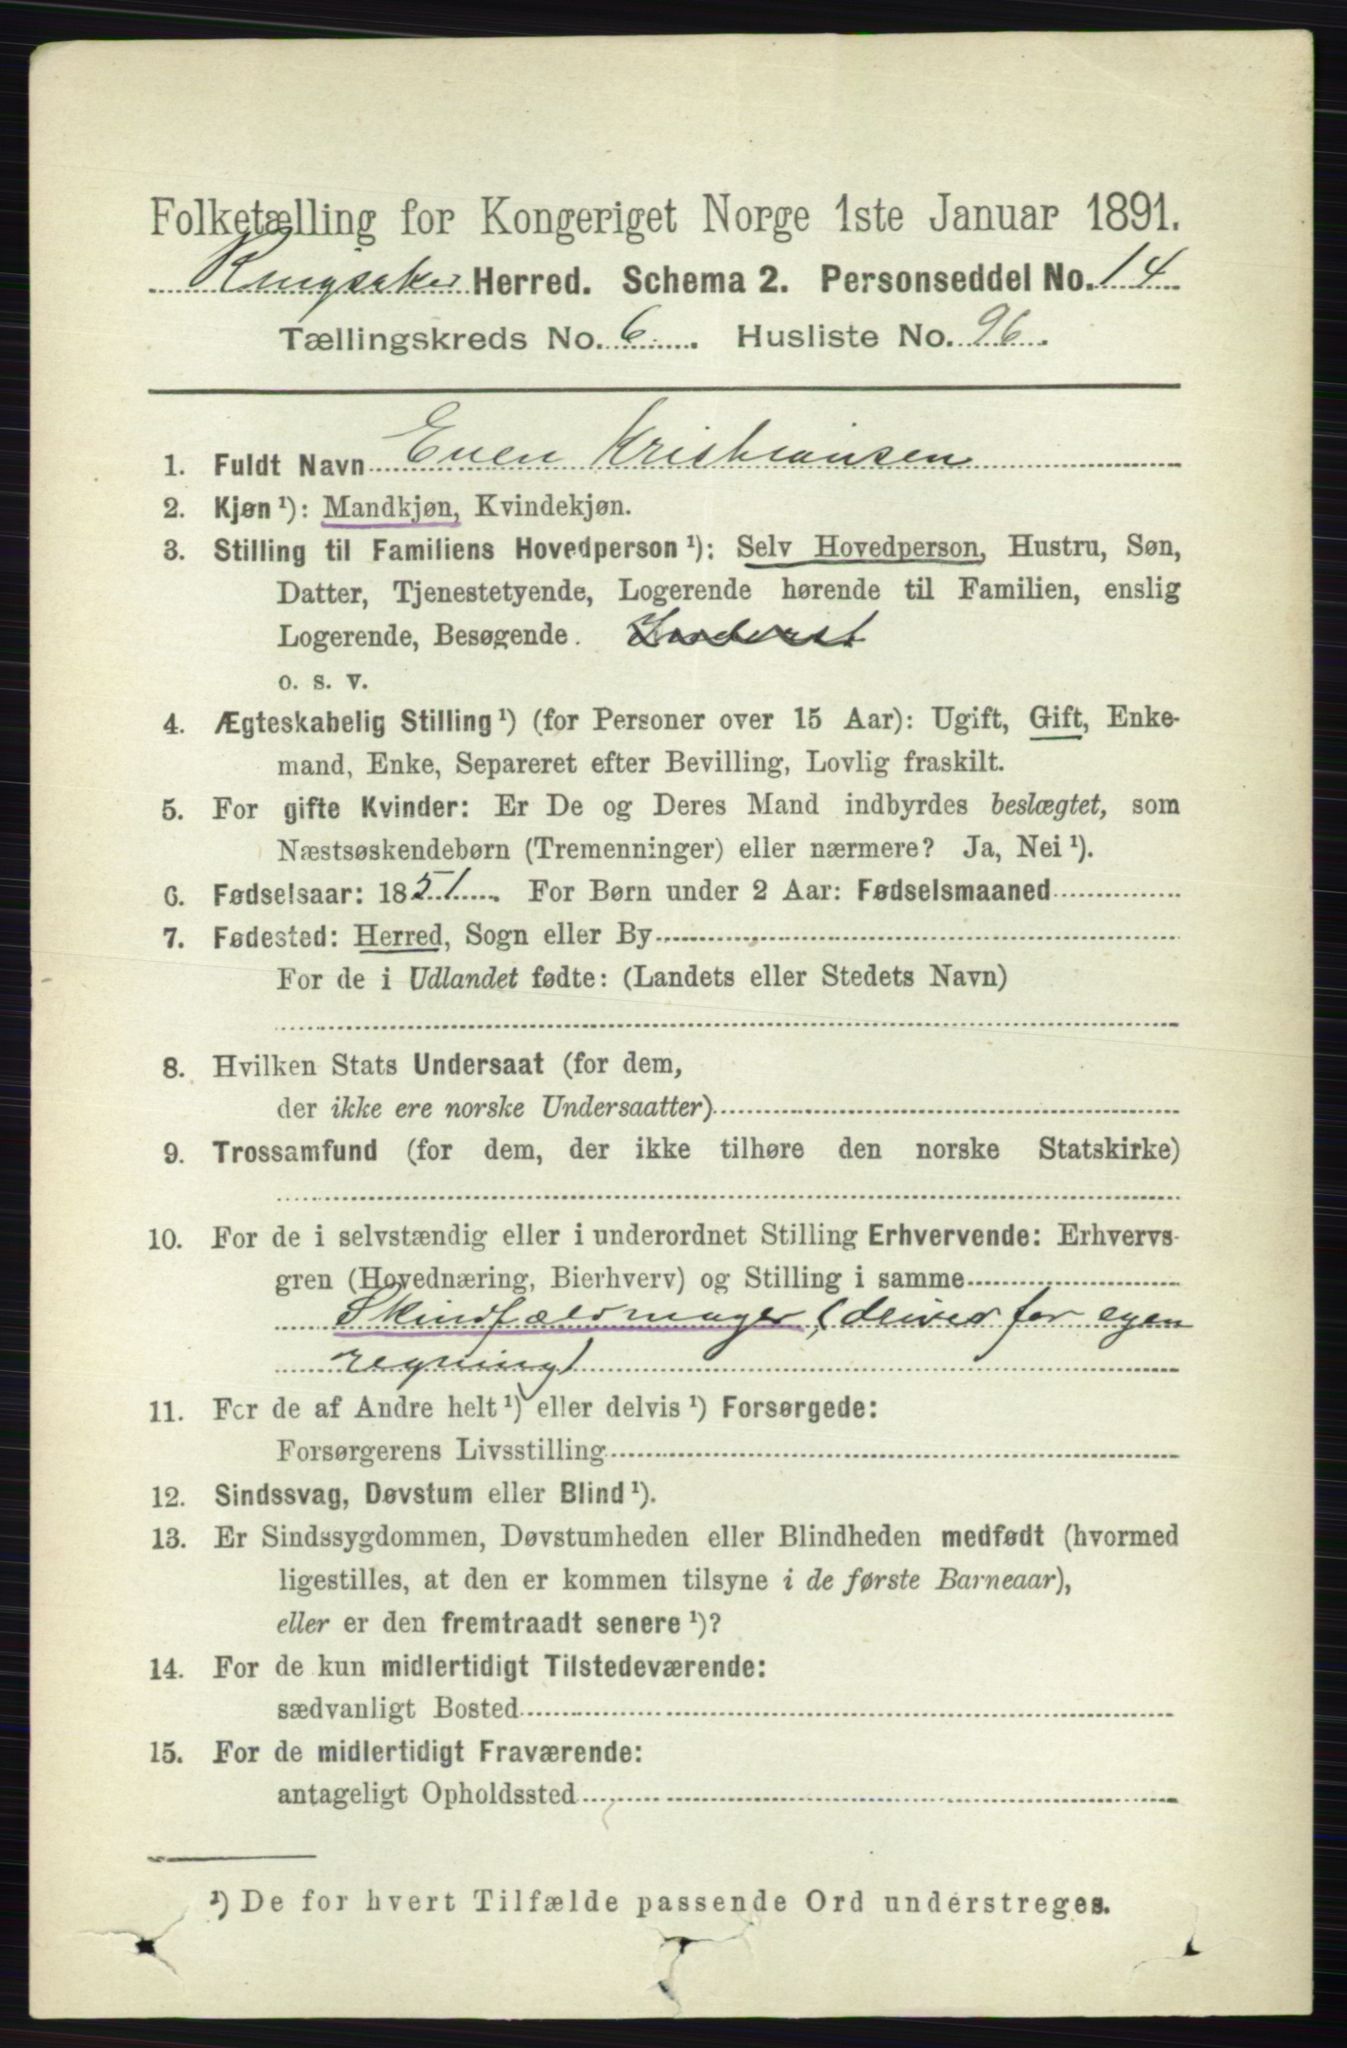 Folketælling for Kongeriget Norge 1ste Januar 1891.
Ringsaker Herred. Schema 2. Personseddel No. 14
Tællingskreds No. 6. Husliste No. 96.
1. Fuldt Navn Even Kristiansen
2. Kjøn ¹): Mandkjøn, Kvindekjøn.
3. Stilling til Familiens Hovedperson ¹): Selv Hovedperson, Hustru, Søn,
Datter, Tjenestetyende, Logerende hørende til Familien, enslig
Logerende, Besøgende. Inderst
o. s. v.
4. Ægteskabelig Stilling ¹) (for Personer over 15 Aar): Ugift, Gift, Enke-
mand, Enke, Separeret efter Bevilling, Lovlig fraskilt.
5. For gifte Kvinder: Er De og Deres Mand indbyrdes beslægtet, som
Næstsøskendebørn (Tremenninger) eller nærmere? Ja, Nei ¹).
6. Fødselsaar: 1851. For Børn under 2 Aar: Fødselsmaaned
7. Fødested: Herred, Sogn eller By
For de i Udlandet fødte: (Landets eller Stedets Navn)
8. Hvilken Stats Undersaat (for dem,
der ikke ere norske Undersaatter)
9. Trossamfund (for dem, der ikke tilhøre den norske Statskirke)
10. For de i selvstændig eller i underordnet Stilling Erhvervende: Erhvervs-
gren (Hovednæring, Bierhverv) og Stilling i samme
Skindfældmager (driver for egen
regning)
11. For de af Andre helt ¹) eller delvis ¹) Forsørgede:
Forsørgerens Livsstilling
12. Sindssvag, Døvstum eller Blind ¹).
13. Er Sindssygdommen, Døvstumheden eller Blindheden medfødt (hvormed
ligestilles, at den er kommen tilsyne i de første Barneaar),
eller er den fremtraadt senere ¹)?
14. For de kun midlertidigt Tilstedeværende:
sædvanligt Bosted
15. For de midlertidigt Fraværende:
antageligt Opholdssted
¹) De for hvert Tilfælde passende Ord understreges.